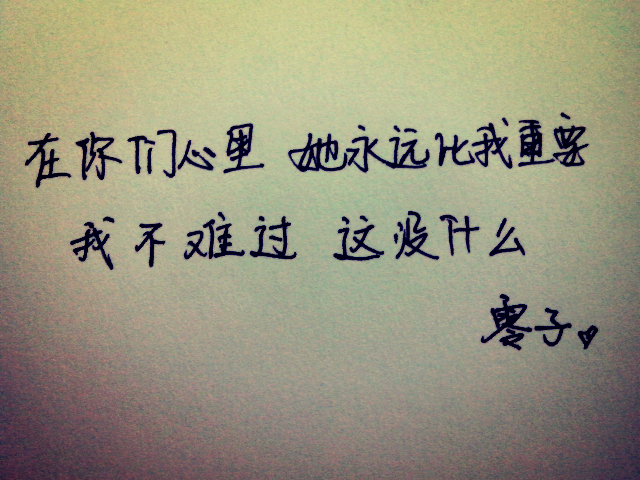 在你们心里 她永远比我重要
我不难过 这没什么
零子